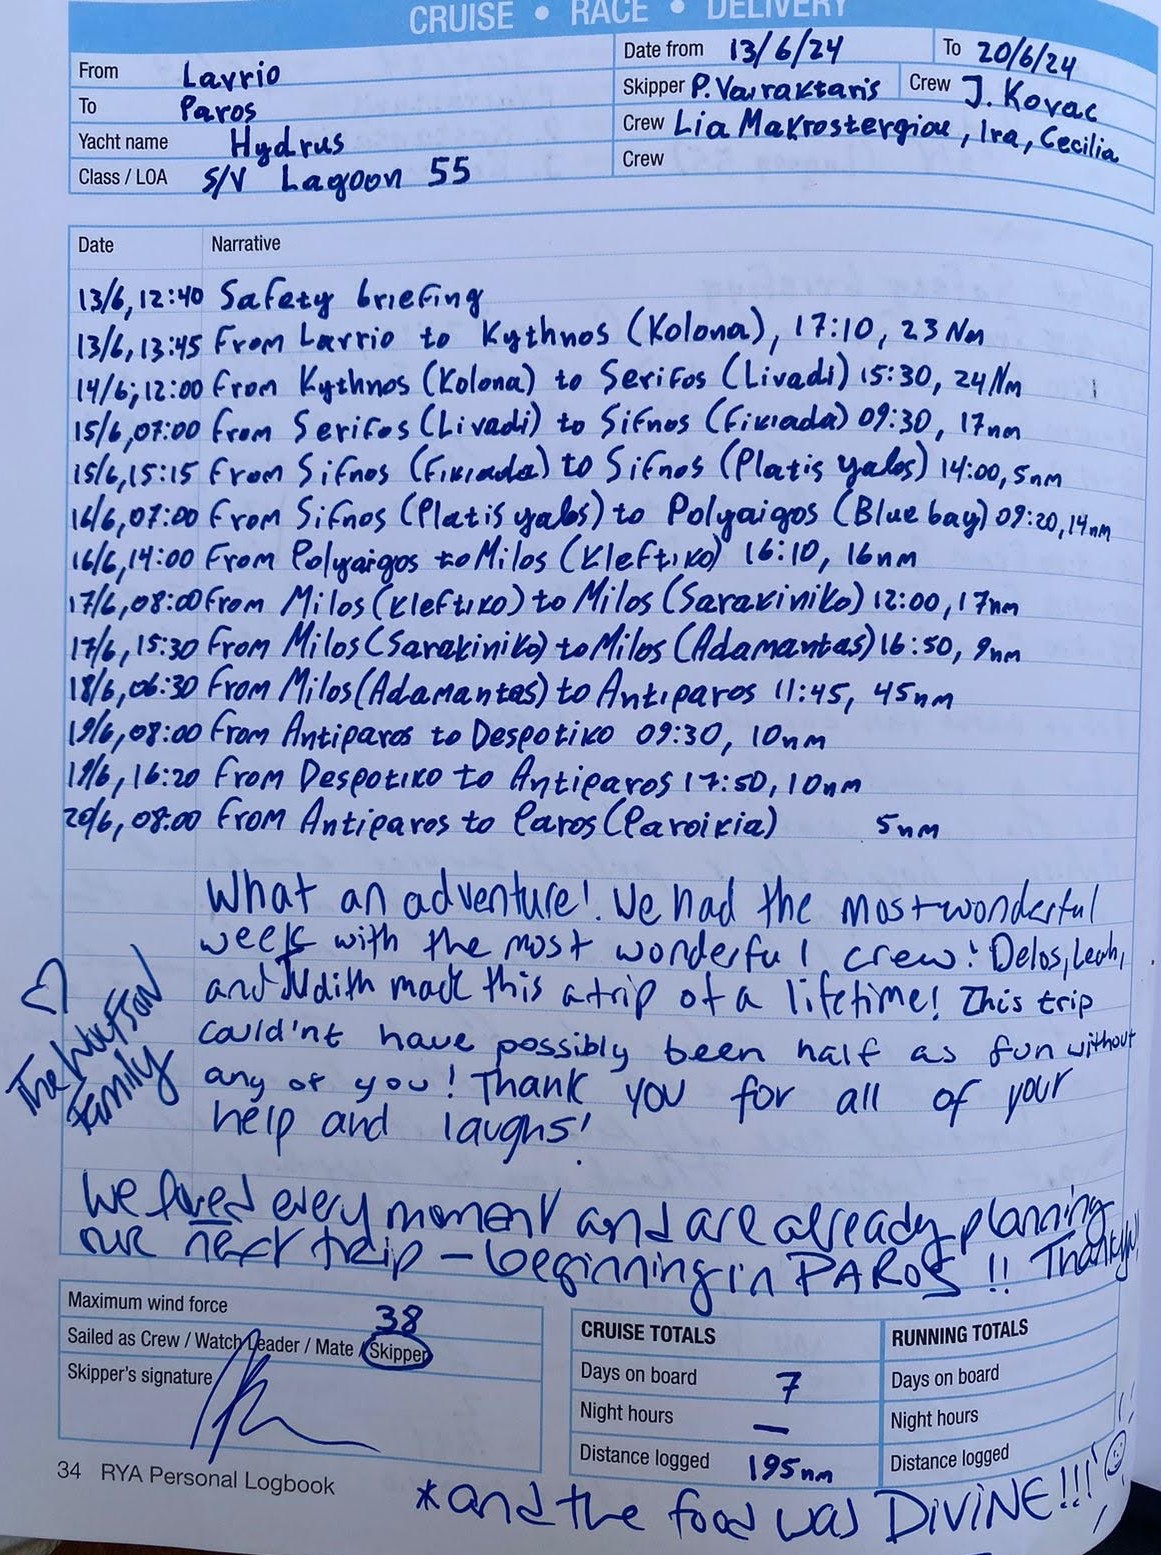 CRUISE • RACE • DELIVERY
From Lavrio
Date from 13/6/24 To 20/6/24
To Paros
Skipper P. Varaktaris Crew J. Kovac
Yacht name Hydrus
Crew Lia Makrostergiou, Ira, Cecilia
Class / LOA S/V Lagoon 55
Crew
Date Narrative
13/6, 12:40 Safety briefing
13/6, 13:45 From Lavrio to Kythnos (Kolona), 17:10, 23 Nm
14/6; 12:00 From Kythnos (Kolona) to Serifos (Livadi) 15:30, 24 Nm
15/6, 07:00 From Serifos (Livadi) to Sifnos (Fikiada) 09:30, 17nm
15/6, 15:15 From Sifnos (Fikiada) to Sifnos (Platis yalos) 14:00, 5nm
16/6, 07:00 From Sifnos (Platis yalos) to Polyaigos (Blue bay) 09:20, 14nm
16/6, 14:00 From Polyaigos to Milos (Kleftiko) 16:10, 16nm
17/6, 08:00 From Milos (Kleftiko) to Milos (Sarakiniko) 12:00, 17nm
17/6, 15:30 From Milos (Sarakiniko) to Milos (Adamantas) 16:50, 9nm
18/6, 06:30 From Milos (Adamantas) to Antiparos 11:45, 45nm
19/6, 08:00 From Antiparos to Despotiko 09:30, 10nm
19/6, 16:20 From Despotiko to Antiparos 17:50, 10nm
20/6, 08:00 From Antiparos to Paros (Paroikia) 5nm
What an adventure! We had the most wonderful
week with the most wonderful crew! Delos, Leah,
and Judith made this a trip of a lifetime! This trip
could'nt have possibly been half as fun without
any of you! Thank you for all of your
help and laughs!
The Watson
Family
We loved every moment and are already planning
our next trip – beginning in PAROS!! Thank you!
Maximum wind force 38
Sailed as Crew / Watch Leader / Mate / Skipper
Skipper's signature
CRUISE TOTALS
Days on board 7
Night hours —
Distance logged 195nm
RUNNING TOTALS
Days on board
Night hours
Distance logged
34 RYA Personal Logbook
*and the food was DIVINE!!!